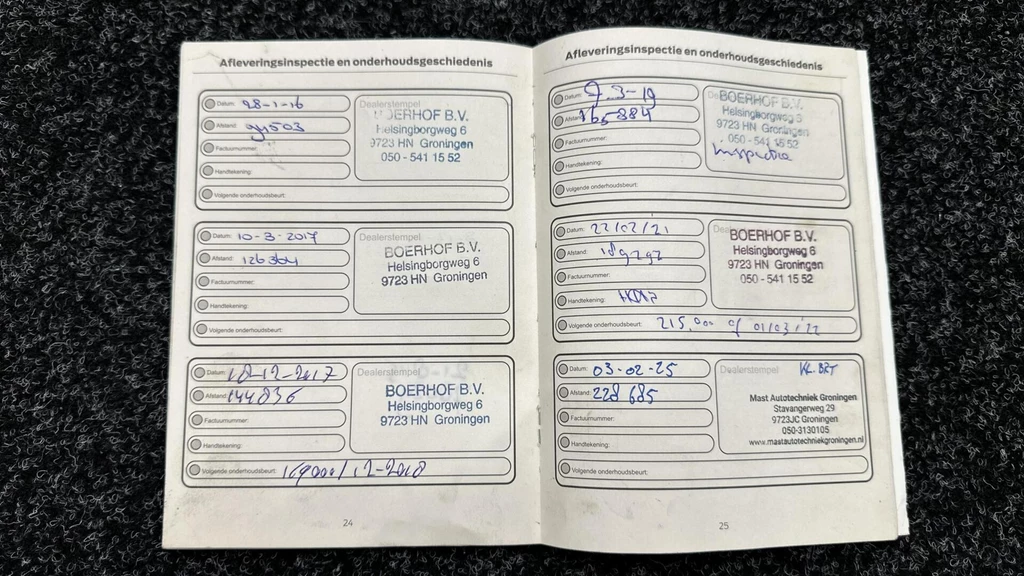 Afleveringsinspectie en onderhoudsgeschiedenis
Datum: 28-1-16
Afstand: 91503
Factuurnummer:
Handtekening:
Volgende onderhoudsbeurt:
Dealerstempel
BOERHOF B.V.
Helsingborgweg 6
9723 HN Groningen
050 - 541 15 52
Datum: 10-3-2017
Afstand: 126364
Factuurnummer:
Handtekening:
Volgende onderhoudsbeurt:
Dealerstempel
BOERHOF B.V.
Helsingborgweg 6
9723 HN Groningen
Datum: 18-12-2017
Afstand: 144836
Factuurnummer:
Handtekening:
Volgende onderhoudsbeurt: 169000/12-2018
Dealerstempel
BOERHOF B.V.
Helsingborgweg 6
9723 HN Groningen
24
Afleveringsinspectie en onderhoudsgeschiedenis
Datum: 7.3-19
Afstand: 165884
Factuurnummer:
Handtekening:
Volgende onderhoudsbeurt:
BOERHOF B.V.
Helsingborgweg 6
9723 HN Groningen
050 - 541 15 52
Inspectie
Datum: 22/02/21
Afstand: 189797
Factuurnummer:
Handtekening:
Volgende onderhoudsbeurt: 215.000 of 01/03/22
BOERHOF B.V.
Helsingborgweg 6
9723 HN Groningen
050 - 541 15 52
Datum: 03-02-25
Afstand: 228 685
Factuurnummer:
Handtekening:
Volgende onderhoudsbeurt:
Dealerstempel KL. BRT
Mast Autotechniek Groningen
Stavangerweg 29
9723JC Groningen
050-3130105
www.mastautotechniekgroningen.nl
25